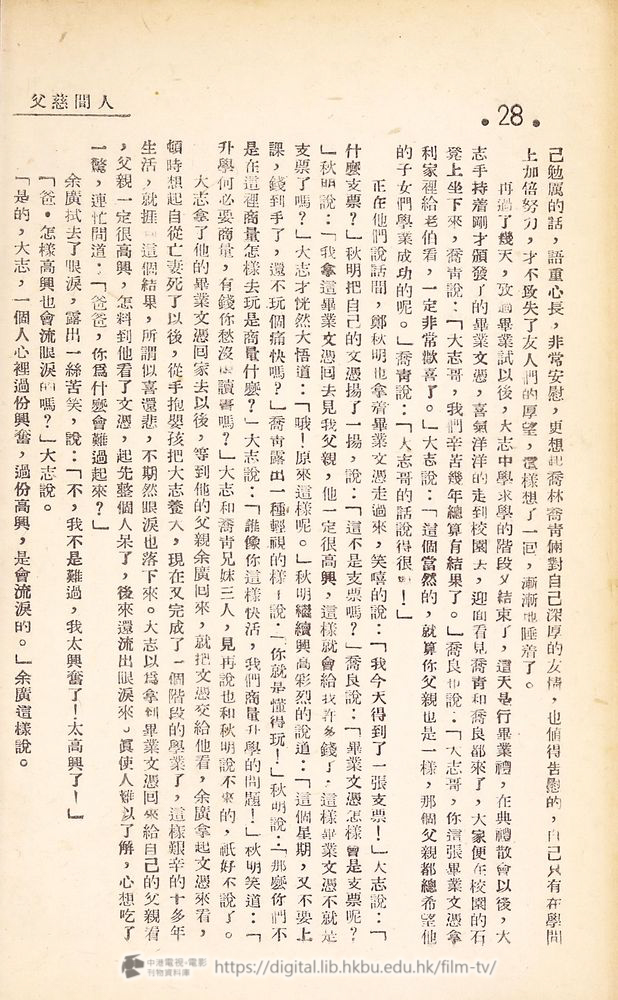 人間慈父
.28.
己勉厲的話，語重心長，非常安慰，更想起喬林喬靑倆對自己深厚的友情，也値得吿慰的，自己只有在學問
上加倍努力，才不致失了友人們的厚望，這樣想了一回，漸漸地睡着了。
再過了幾天，攷過畢業試以後，大志中學求學的階段又結束了，這天是行畢業禮，在典禮散會以後，大
志手持着剛才頒發了的畢業文憑，喜氣洋洋的走到校園去，迎面看見喬靑和喬良都來了，大家便在校園的石
凳上坐下來，喬靑說：「大志哥，我們辛苦幾年總算有結果了。」喬良也說：「大志哥，你這張畢業文憑拿
利家裡給老伯看，一定非常歡喜了。」大志說：「這個當然的，就算你父親也是一樣，那個父親都總希望他
的子女們學業成功的呢。」喬靑說：「大志哥的話說得很！」
正在他們說話間，鄭秋明也拿着畢業文憑走過來，笑嘻的說：「我今天得到了一張支票！」大志說：「
什麼支票？」秋明把自己的文憑揚了一揚，說：「這不是支票嗎？」喬良說：「畢業文憑怎樣會是支票呢？
」秋明說：「我拿這畢業文憑回去見我父親，他一定很高興，這樣就會給我許多錢了，這樣畢業文憑不就是
支票了嗎？」大志才恍然大悟道：「哦！原來這樣呢。」秋明繼續興高彩烈的說道：「這個星期，又不要上
課，錢到手了，還不玩個痛快嗎？」喬靑露出一種輕視的樣子說：「你就是懂得玩！」秋明說：「那麼你們不
是在這裡商量怎樣去玩是商量什麼？」大志說：「誰像你這樣快活，我們商量升學的問題！」秋明笑道：「
升學何必要商量，有錢你愁沒讀書嗎？」大志和喬靑兄妹三人，見再說也和秋明說不來的，祇好不說了。
大志拿了他的畢業文憑回家去以後，等到他的父親余廣回來，就把文憑交給他看，余廣拿起文憑來看，
頓時想起自從亡妻死了以後，從手抱嬰孩把大志養大，現在又完成了一個階段的學業了，這樣艱辛的十多年
生活，就捱這個結果，所謂似喜還悲，不期然眼淚也落下來。大志以爲拿到畢業文憑回來給自己的父親看
，父親一定很高興，怎料到他看了文憑，起先整個人呆了，後來還流出眼淚來。眞使人難以了解，心想吃了
一驚，連忙問道：「爸爸，你爲什麼會難過起來？」
余廣拭去了眼淚，露出一絲苦笑，說：「不，我不是難過，我太興奮了！太高興了！」
「爸。怎樣高興也會流眼淚的嗎？」大志說。
「是的，大志，一個人心裡過份興奮，過份高興，是會流淚的。」余廣這樣說。
中港電視·電影
刊物資料庫
https://digital.lib.hkbu.edu.hk/film-tv/